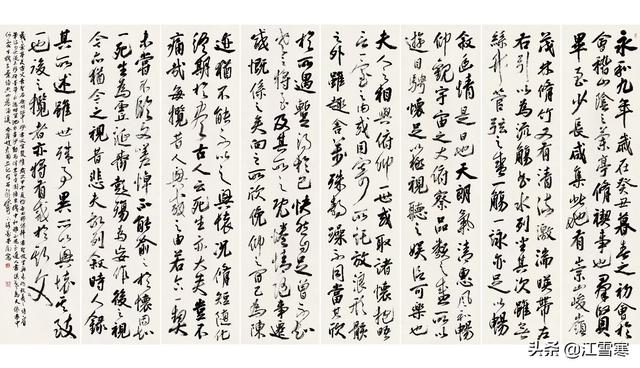 永和九年歲在癸丑暮春之初會於
會稽山陰之蘭亭脩稧事也羣賢
畢至少長咸集此地有崇山峻嶺
茂林脩竹又有清流激湍暎帶左
右引以為流觴曲水列坐其次雖無
絲竹管弦之盛一觴一詠亦足以暢
敘幽情是日也天朗氣清惠風和暢
仰觀宇宙之大俯察品類之盛所以
遊目騁懷足以極視聽之娛信可樂也
夫人之相與俯仰一世或取諸懷抱晤
言一室之內或因寄所託放浪形骸
之外雖趣舍萬殊靜躁不同當其欣
於所遇暫得於己快然自足曾不知
老之將至及其所之既惓情隨事遷
感慨係之矣向之所欣俛仰之間已為陳
迹猶不能不以之興懷況脩短隨化
終期於盡古人云死生亦大矣豈不
痛哉每攬昔人興感之由若合一契
未嘗不臨文嗟悼不能喻之於懷固知
一死生為虛誕齊彭殤為妄作後之視
今亦猶今之視昔悲夫故列敘時人錄
其所述雖世殊事異所以興懷其致
一也後之攬者亦將有感於斯文
头条 @江雪寒